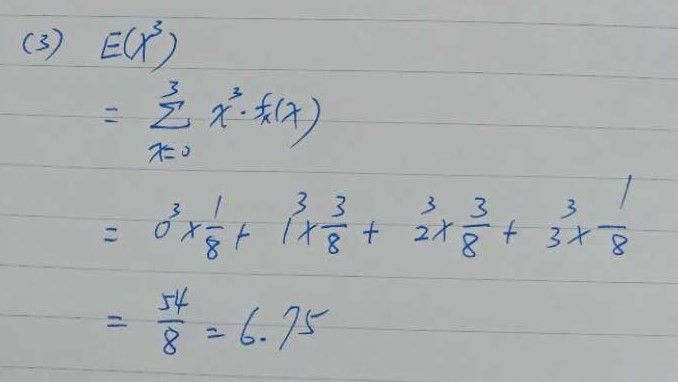 (3) E(X³)
= ∑_{x=0}^{3} x³·fₓ(x)
= 0³×1/8 + 1³×3/8 + 2³×3/8 + 3³×1/8
= 54/8 = 6.75